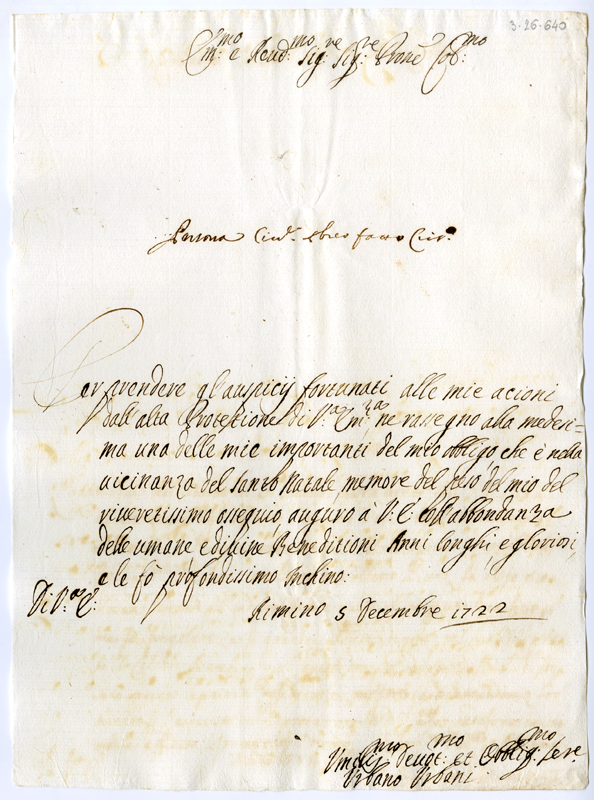 3-26-640
Em:mo e Reud:mo Sig:re Sig:re Prone Col:mo
Per prendere gl'auspicij fortunati alle mie acioni
dall'alta Protettione di V:a Em:za ne rassegno alla medesi-
ma una delle mie importanti del mio obbligo, che è nella
vicinanza del Santo Natale, memore del del mio del
riveretissimo ossequio, auguro à V: E: coll'abbondanza
delle umane e divine Beneditioni Anni longhi, e gloriosi,
e le fò profondissimo Inchino:
Di V:a E:
Rimino 5 Decembre 1722
Vmilis:mo Deuot:mo et Obblig:mo Serre
Vrbano Vrbani